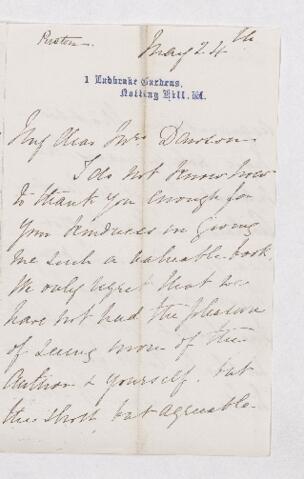 May 24th
1 Ladbroke Gardens,
Notting Hill. W.
My dear Mrs Dawson
I do not know how
to thank you enough for
your kindness in giving
me such a valuable book,
We only regret that we
have not had the pleasure
of seeing more of the
Author & yourself. but
the short, but agreeable